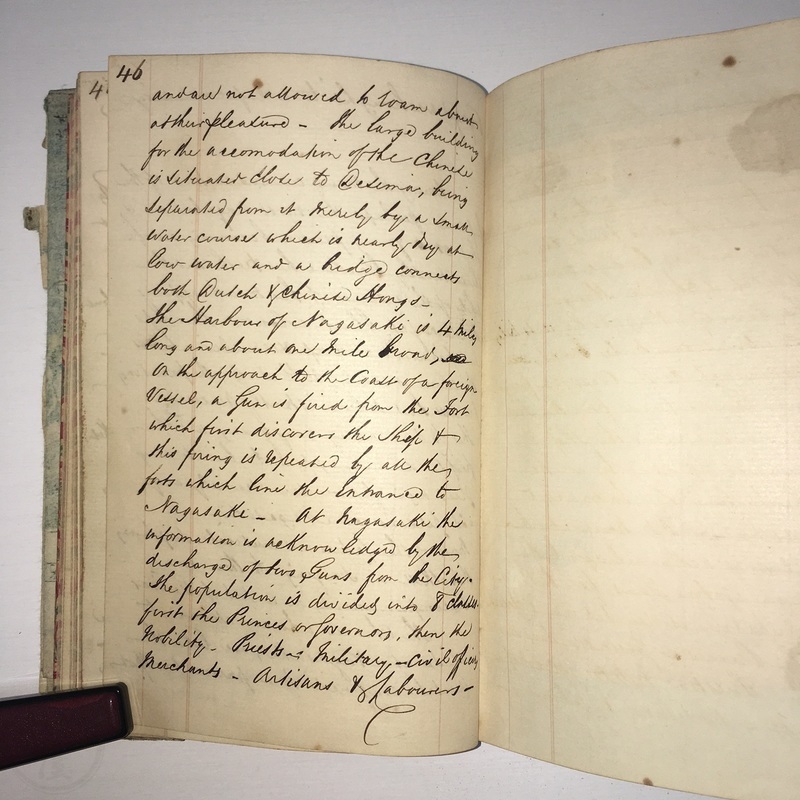 46
4
and are not allowed to roam about
at their pleasure - The large building
for the accomodation of the Chinese
is situated close to Desima, being
separated from it merely by a small
water course which is nearly dry at
low water and a bridge connects
both Dutch & Chinese Hongs -
The Harbour of Nagasaki is 4 Miles
long and about one Mile broad,
On the approach to the Coast of a foreign
Vessel, a Gun is fired from the Fort
which first discovers the Ship &
this firing is repeated by all the
forts which line the entrance to
Nagasake - At Nagasaki the
information is acknowledged by the
discharge of two Guns from the City -
The population is divided into 8 classes
first the Princes or Governors, then the
Nobility - Priests - Military, - Civil officers
Merchants - Artisans & Labourers -